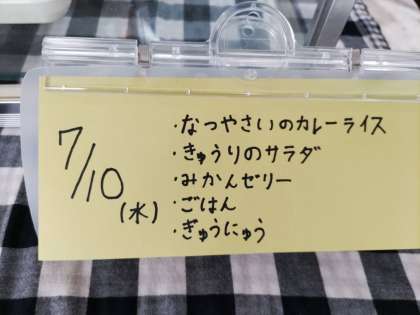 7/10
(水)
・なつやさいのカレーライス
・きゅうりのサラダ
・みかんゼリー
・ごはん
・ぎゅうにゅう